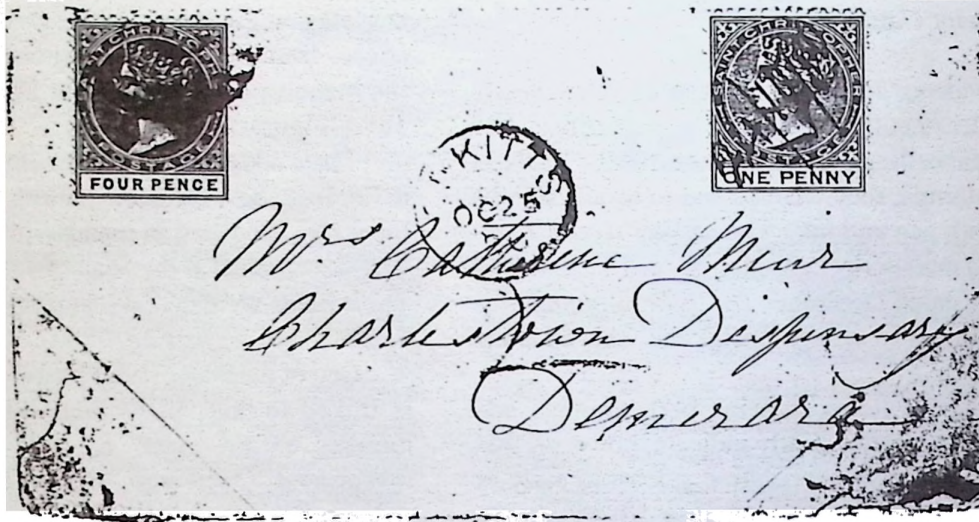 SAINT CHRISTOPHER
POSTAGE
FOUR PENCE
SAINT CHRISTOPHER
POSTAGE
ONE PENNY
KITTS
OC 25
Mrs Catherine Muir
Charlestown Dispensary
Demerara